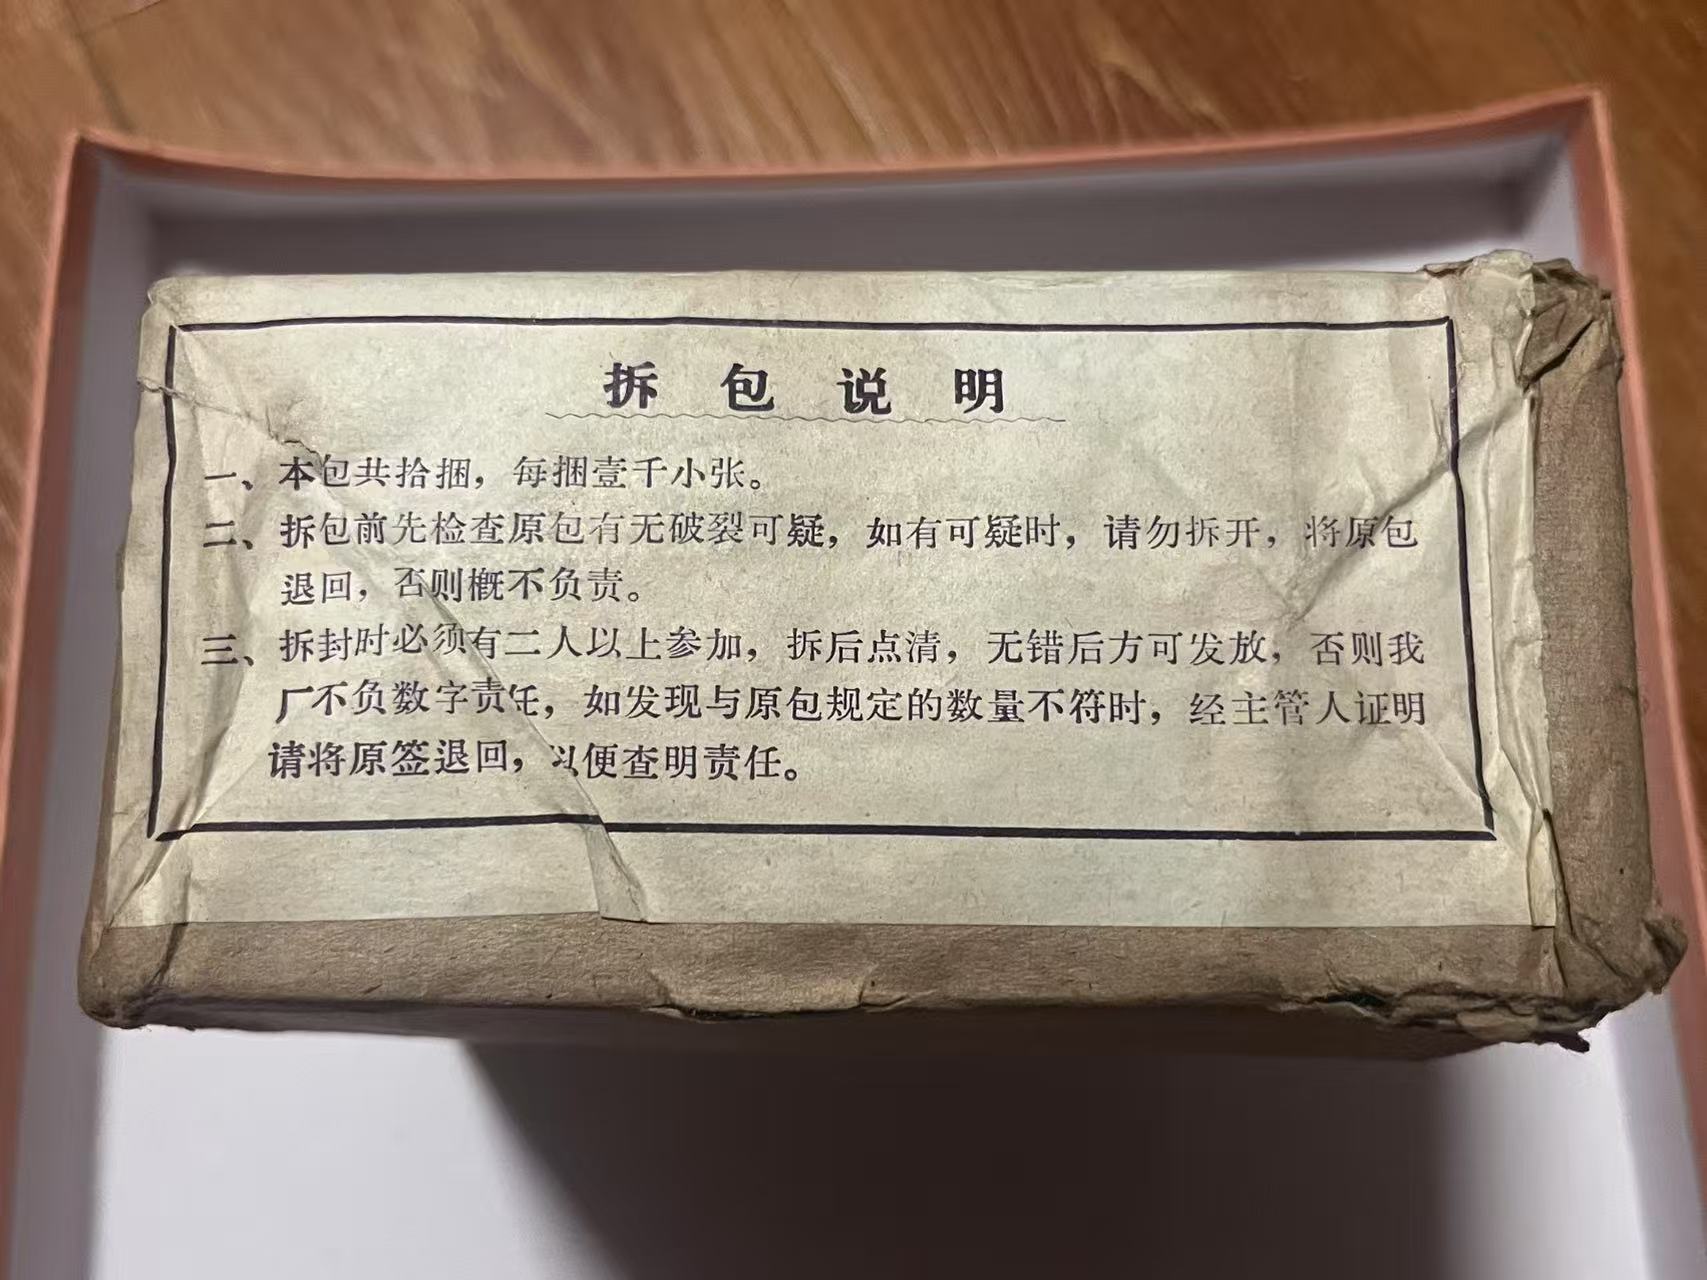 拆包说明
一、本包共拾捆，每捆壹千小张。
二、拆包前先检查原包有无破裂可疑，如有可疑时，请勿拆开，将原包
退回，否则概不负责。
三、拆封时必须有二人以上参加，拆后点清，无错后方可发放，否则我
厂不负数字责任，如发现与原包规定的数量不符时，经主管人证明
请将原签退回，以便查明责任。